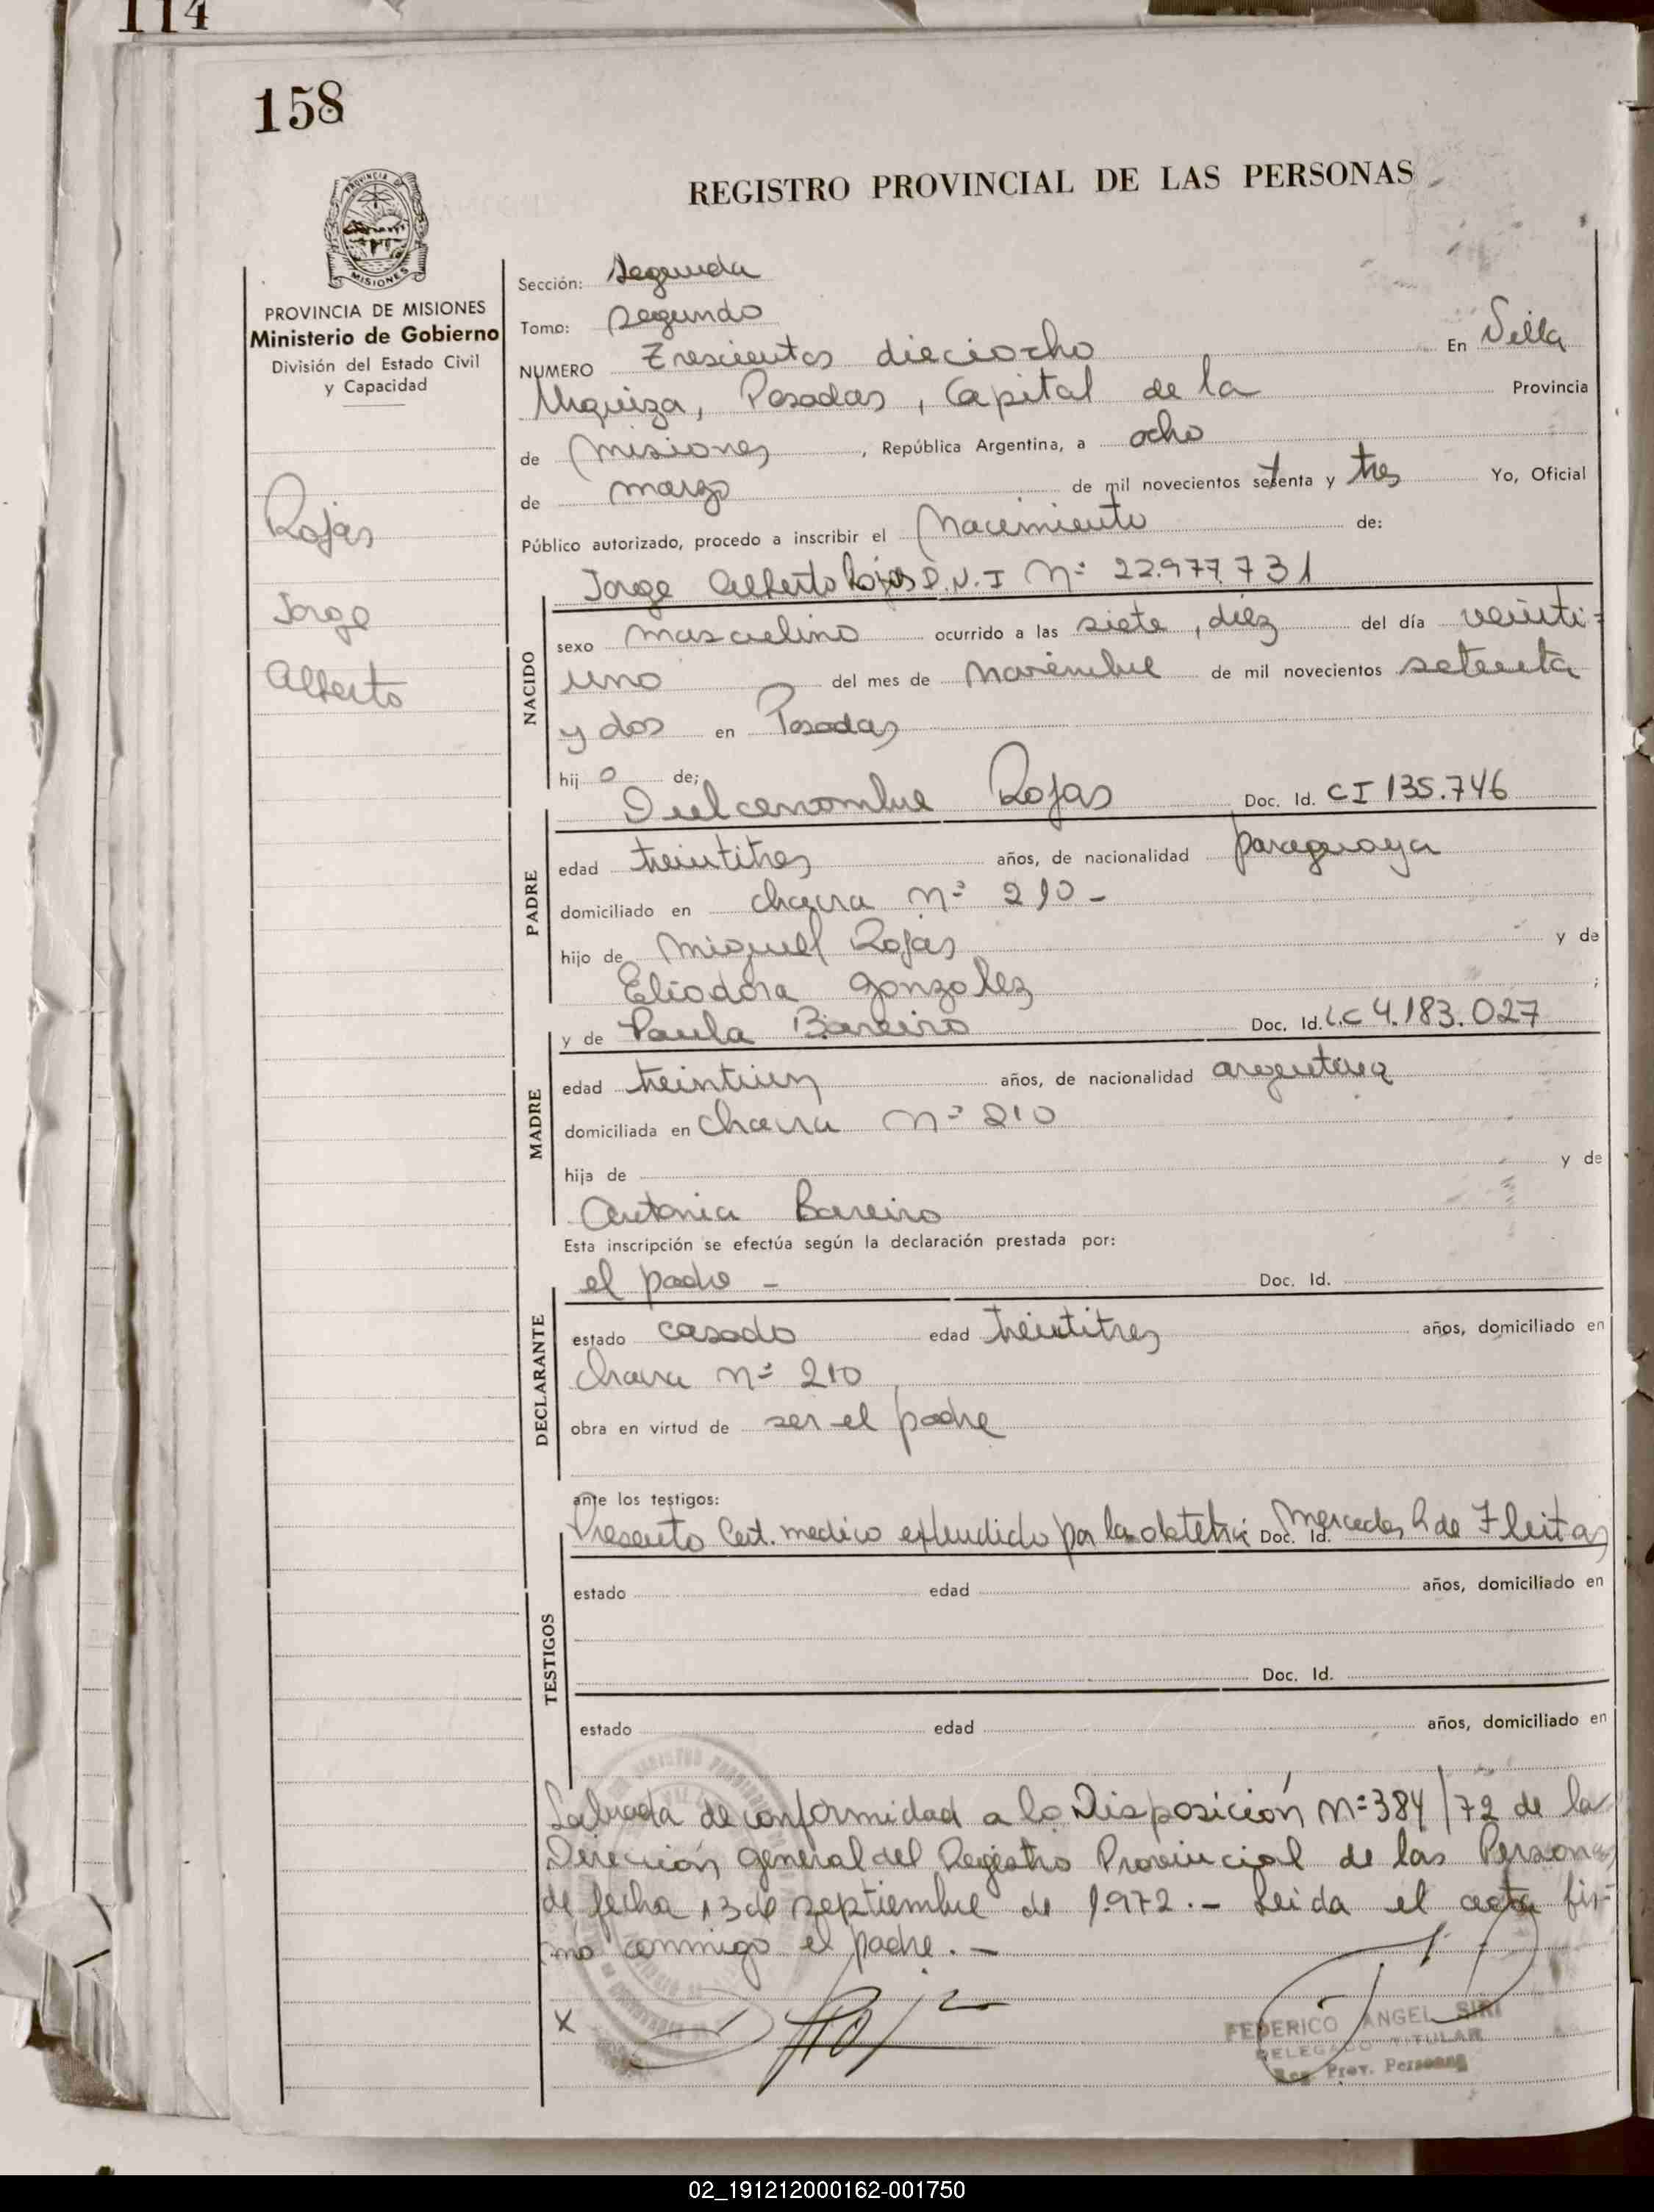 114
158
REGISTRO PROVINCIAL DE LAS PERSONAS
PROVINCIA DE
MISIONES
PROVINCIA DE MISIONES
Ministerio de Gobierno
División del Estado Civil
y Capacidad
Rojas
Jorge
Alberto
Sección: Segunda
Tomo: segundo
NUMERO Trescientos dieciocho En Villa
Urquiza, Posadas, Capital de la Provincia
de Misiones, República Argentina, a ocho
de marzo de mil novecientos setenta y tres Yo, Oficial
Público autorizado, procedo a inscribir el Nacimiento de:
Jorge Alberto Rojas D.N.I Nº 22.977.731
NACIDO
sexo masculino ocurrido a las siete, diez del día veinti=
uno del mes de Noviembre de mil novecientos setenta
y dos en Posadas
hij o de;
Dulcenombre Rojas Doc. Id. CI 135.746
PADRE
edad treintitres años, de nacionalidad paraguaya
domiciliado en chacra nº 210 -
hijo de Miguel Rojas y de
Eliodora Gonzalez ;
y de Paula Bareiro Doc. Id. L.C 4.183.027
MADRE
edad treintiun años, de nacionalidad argentina
domiciliada en chacra nº 210
hija de y de
Antonia Bareiro
Esta inscripción se efectúa según la declaración prestada por:
el padre - Doc. Id.
DECLARANTE
estado casado edad treintitres años, domiciliado en
chacra nº 210
obra en virtud de ser el padre
ante los testigos:
Presento Cert. medico extendido por la obstetriz Doc. Id. Mercedes R de Fleitas
TESTIGOS
estado edad años, domiciliado en
Doc. Id.
estado edad años, domiciliado en
Labrada de conformidad a la Disposición Nº 384/72 de la
Dirección General del Registro Provincial de las Personas
de fecha 13 de septiembre de 1.972.- Leida el acta fir=
mo conmigo el padre. -
X
FEDERICO ANGEL SIRI
DELEGADO TITULAR
Reg. Prov. Personas
02_191212000162-001750